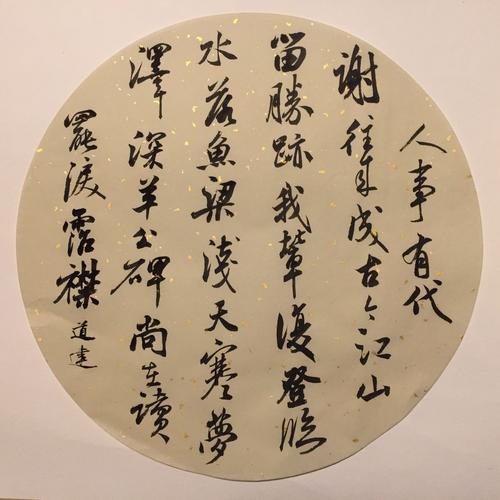 人事有代
謝往来成古今江山
留勝跡我輩復登臨
水落魚梁淺天寒夢
澤深羊公碑尚在讀
罷淚霑襟
道建